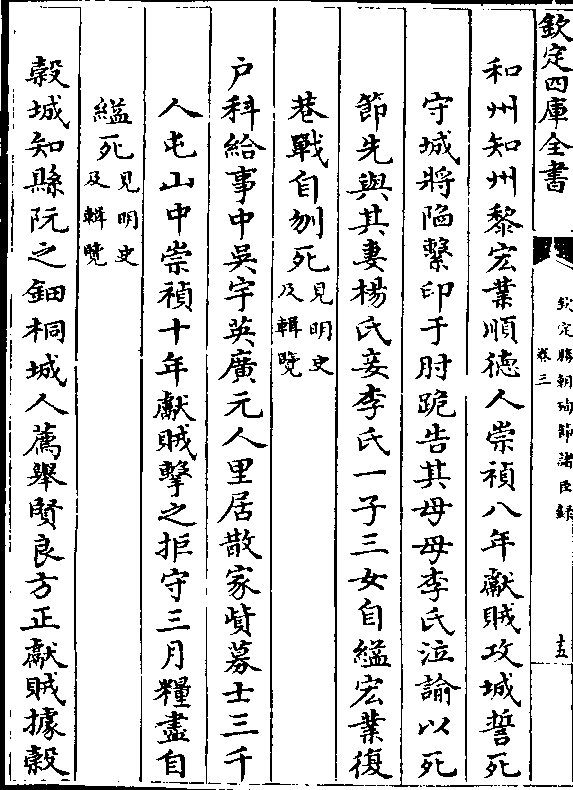 欽定四庫全書
欽定勝朝殉節諸臣録
卷三
十五
和州知州黎宏業順德人崇禎八年獻賊攻城誓死
守城將陷繫印于肘跪告其母母李氏泣諭以死
節先與其妻楊氏妾李氏一子三女自縊宏業復
巷戰自刎死見明史
及輯覽
户科給事中吳宇英廣元人里居散家貲募士三千
人屯山中崇禎十年獻賊擊之拒守三月糧盡自
縊死見明史
及輯覽
榖城知縣阮之鈿桐城人薦舉賢良方正獻賊據榖